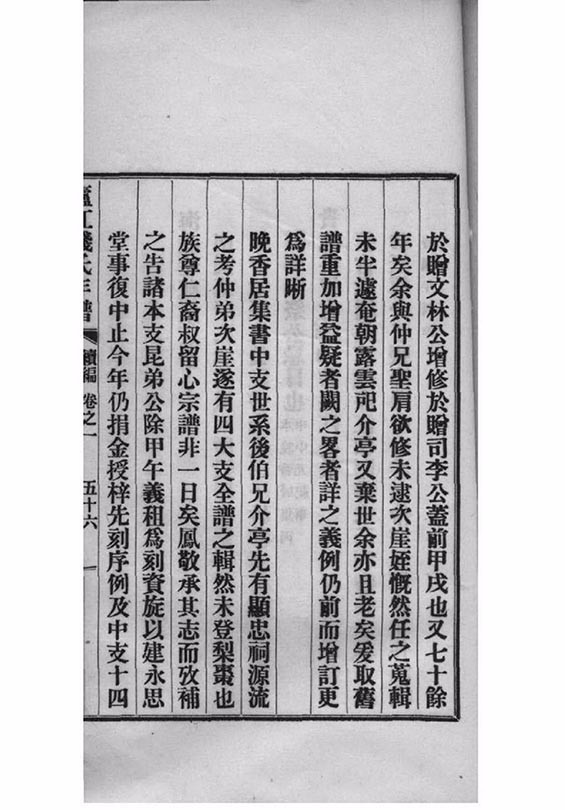 於贈文林公增修於贈司李公蓋前甲戌也又七十餘
年矣余與仲兄聖肩欲修未逮次崖姪慨然任之蒐輯
未半遽奄朝露雲咫介亭又棄世余亦且老矣爰取舊
譜重加增益疑者闕之畧者詳之義例仍前而增訂更
為詳晰
晚香居集書中支世系後伯兄介亭先有顯忠祠源流
之考仲弟次崖遂有四大支全譜之輯然未登梨棗也
族尊仁裔叔留心宗譜非一日矣鳳敬承其志而攷補
之吿諸本支昆弟公除甲午義租為刻資旋以建永思
堂事復中止今年仍捐金授梓先刻序例及中支十四
廬江錢氏年譜 續編 卷之一 五十六